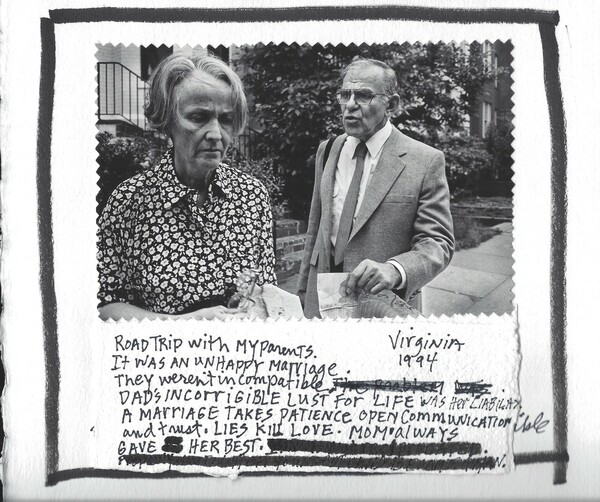 ROAD TRIP with My PArents.
Virginia
1994
It was an unhappy marriage.
They weren't incompatible
DAD'S INCORRIGIBLE LUST FOR LIFE WAS Her LIABILITY.
A MARRIAGE TAKES PATIENCE OPEN COMMUNICATION
and trust. LIES KILL LOVE. MOM always
GAVE HER BEST.